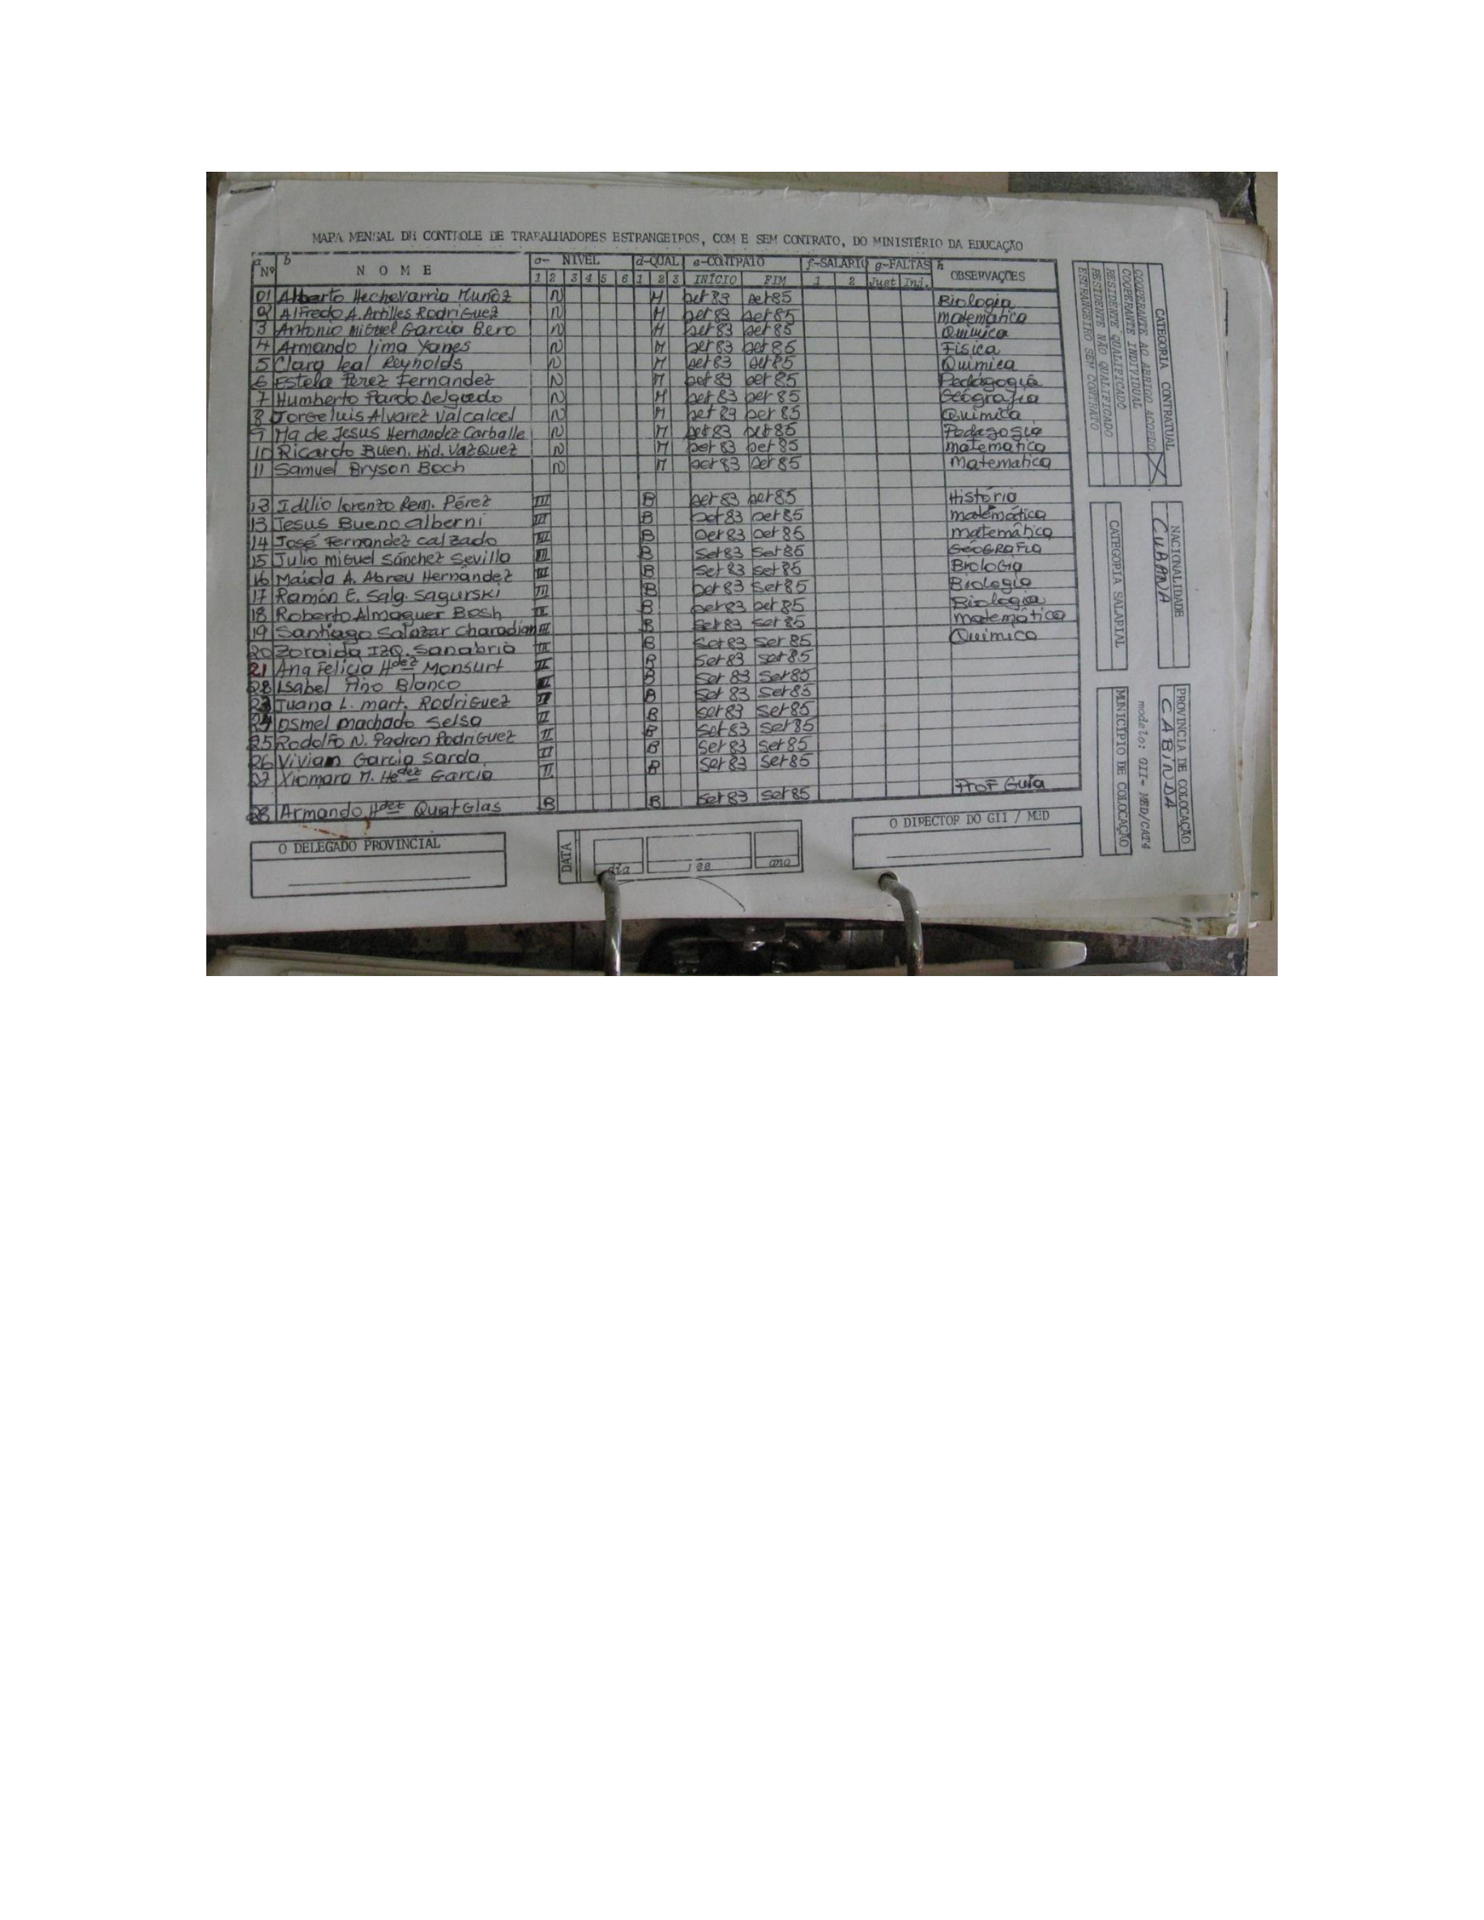 MAPA MENSAL DE CONTROLE DE TRABALHADORES ESTRANGEIROS, COM E SEM CONTRATO, DO MINISTÉRIO DA EDUCAÇÃO
a Nº b NOME NIVEL d-QUAL e-CONTRATO f-SALARIO g-FALTAS h OBSERVAÇÕES
1 2 3 4 5 6 1 2 3 INÍCIO FIM 1 2 Just Inj.
01 Alberto Hechevarria Muñoz N M set 83 set 85 Biologia
02 Alfredo A. Artilles Rodriguez N M set 83 set 85 matemática
3 Antonio Miguel Garcia Bero N M set 83 set 85 Quimica
4 Armando Lima Yanes N M set 83 set 85 Fisica
5 Clara Leal Reynolds N M set 83 set 85 Quimica
6 Estela Perez Fernandez N M set 83 set 85 Pedagogia
7 Humberto Pardo Delgado N M set 83 set 85 Geografia
8 Jorge Luis Alvarez Valcalcel N M set 83 set 85 Quimica
9 Mª de Jesus Hernandez Carballe N M set 83 set 85 Pedagogia
10 Ricardo Buen. Hid. Vazquez N M set 83 set 85 matematica
11 Samuel Bryson Boch N M set 83 set 85 Matematica
13 Idilio Lorenzo Rem. Pérez III B set 83 set 85 História
13 Jesus Bueno alberni III B set 83 set 85 matemática
14 José Fernandez calzado III B set 83 set 85 matemática
15 Julio Miguel Sánchez Sevilla III B set 83 set 85 Geografia
16 A. Abreu Hernández III B set 83 set 85 Biologia
17 Ramón E. Salg. Sagurski III B set 83 set 85 Biologia
18 Roberto Almaguer Bosh III B set 83 set 85 Biologia
19 Santiago Salazar III B set 83 set 85 matemática
20 Zoraida IZQ. Sanabria III B set 83 set 85 Quimica
21 Ana Felicia Hdez Monsurt II B set 83 set 85
22 Isabel Pino Blanco B set 83 set 85
23 Juana L. mart. Rodriguez II B set 83 set 85
24 Osmel Machado Selsa II B set 83 set 85
25 Rodolfo N. Padron Rodriguez II B set 83 set 85
26 Vivian Garcia Sarda II B set 83 set 85
27 Xiomara M. Hedez Garcia II B set 83 set 85
28 Armando Hdez Quatglas B B set 83 set 85 Prof Guia
O DELEGADO PROVINCIAL
DATA
dia ano
O DIRECTOR DO GII / MED
CATEGORIA CONTRATUAL
COOPERANTE AO ABRIGO ACORDO X
COOPERANTE INDIVIDUAL
RESIDENTE QUALIFICADO
RESIDENTE NÃO QUALIFICADO
ESTRANGEIRO SEM CONTRATO
NACIONALIDADE
CUBANA
CATEGORIA SALARIAL
PROVINCIA DE COLOCAÇÃO
CABINDA
modelo: GII- MED/CAT4
MUNICIPIO DE COLOCAÇÃO